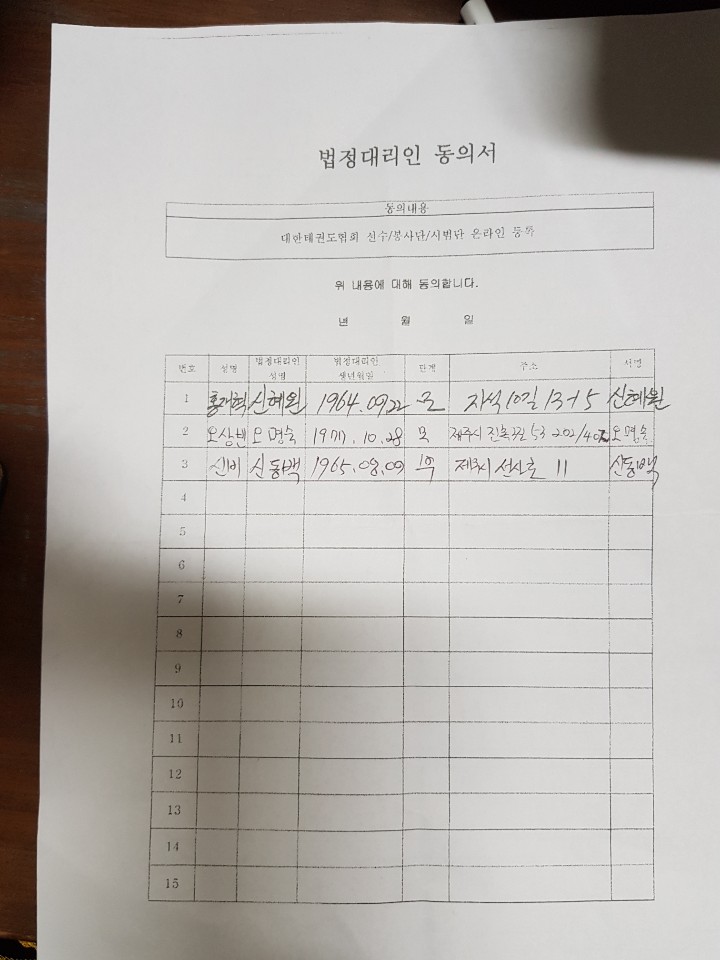 법정대리인 동의서
동의내용
대한태권도협회 선수/봉사단/시범단 온라인 등록
위 내용에 대해 동의합니다.
년 월 일
번호 성명 법정대리인 성명 법정대리인 생년월일 관계 주소 서명
1 홍재혁 신혜원 1964.09.22 모 지석10길 13-15 신혜원
2 오상빈 오명숙 1977.10.28 모 제주시 53 202/402 오명숙
3 신비 신동백 1965.08.09 부 제주시 선사로 11 신동백
4
5
6
7
8
9
10
11
12
13
14
15